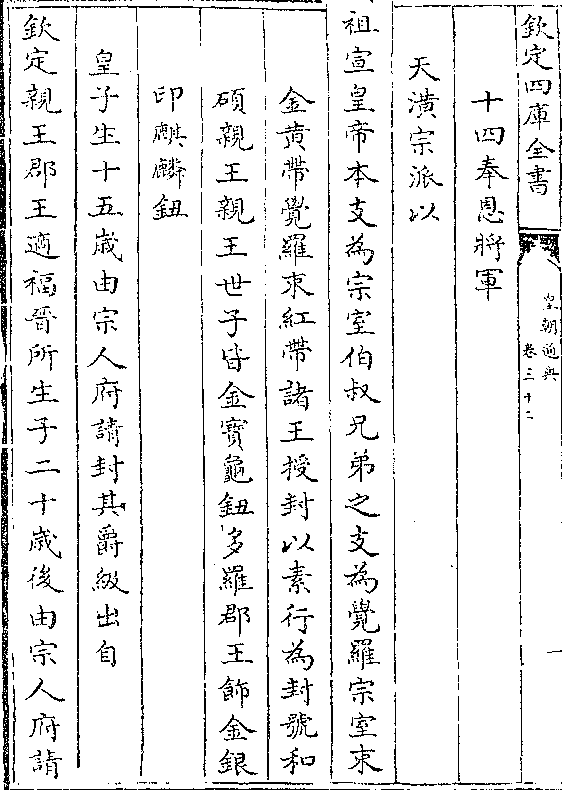 欽定四庫全書
皇朝通典
卷三十二
十四奉恩將軍
天潢宗派以
祖宣皇帝本支為宗室伯叔兄弟之支為覺羅宗室束
金黄帶覺羅束紅帶諸王授封以素行為封號和
碩親王親王世子皆金寶龜鈕多羅郡王飾金銀
印麒麟鈕
皇子生十五歲由宗人府請封其爵級出自
欽定親王郡王適福晉所生子二十歲後由宗人府請